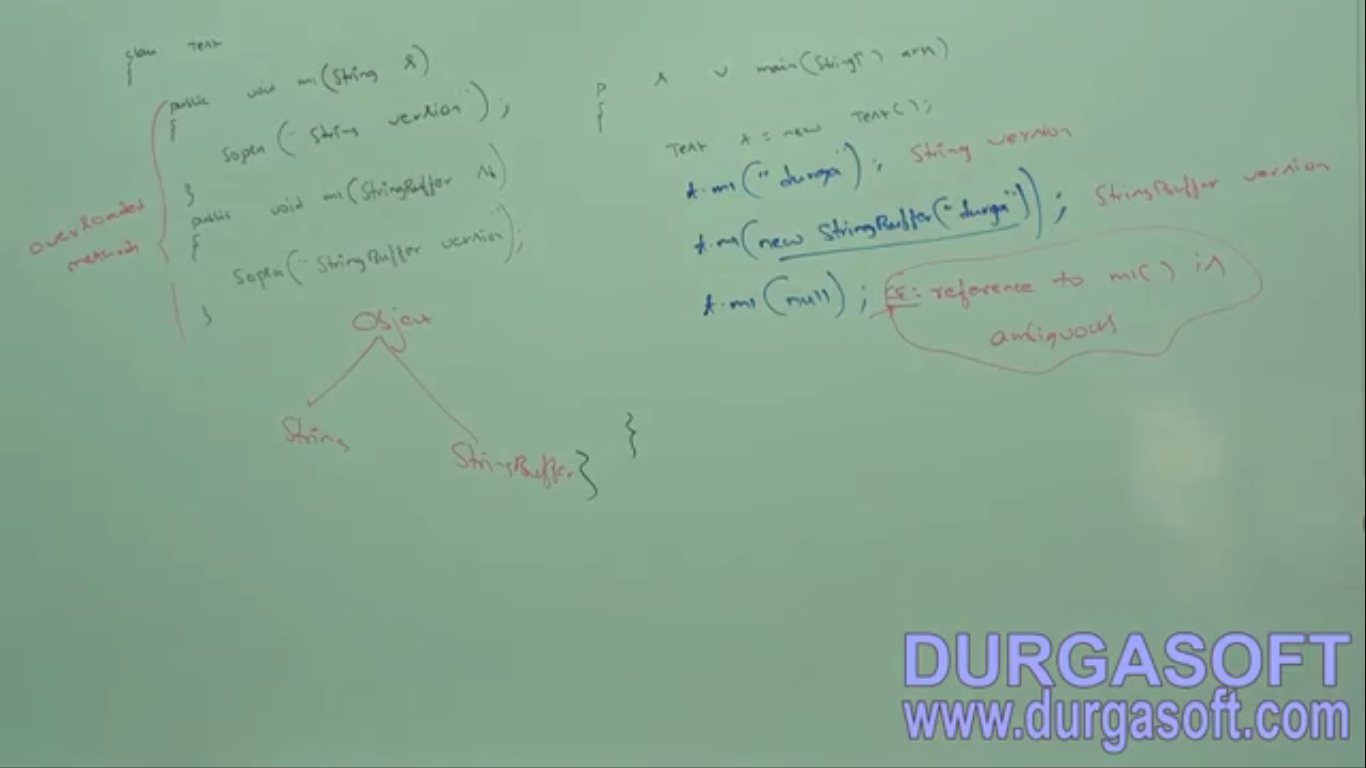 class Test
{
public void m1(String s)
{
sopln("String version");
}
public void m1(StringBuffer sb)
{
sopln("StringBuffer version");
}
overloaded
methods
Object
String
StringBuffer
}
P s v main(String[] args)
{
Test t = new Test();
t.m1("durga"); String version
t.m1(new StringBuffer("durga")); StringBuffer version
t.m1(null); CE: reference to m1() is
ambiguous
}
DURGASOFT
www.durgasoft.com